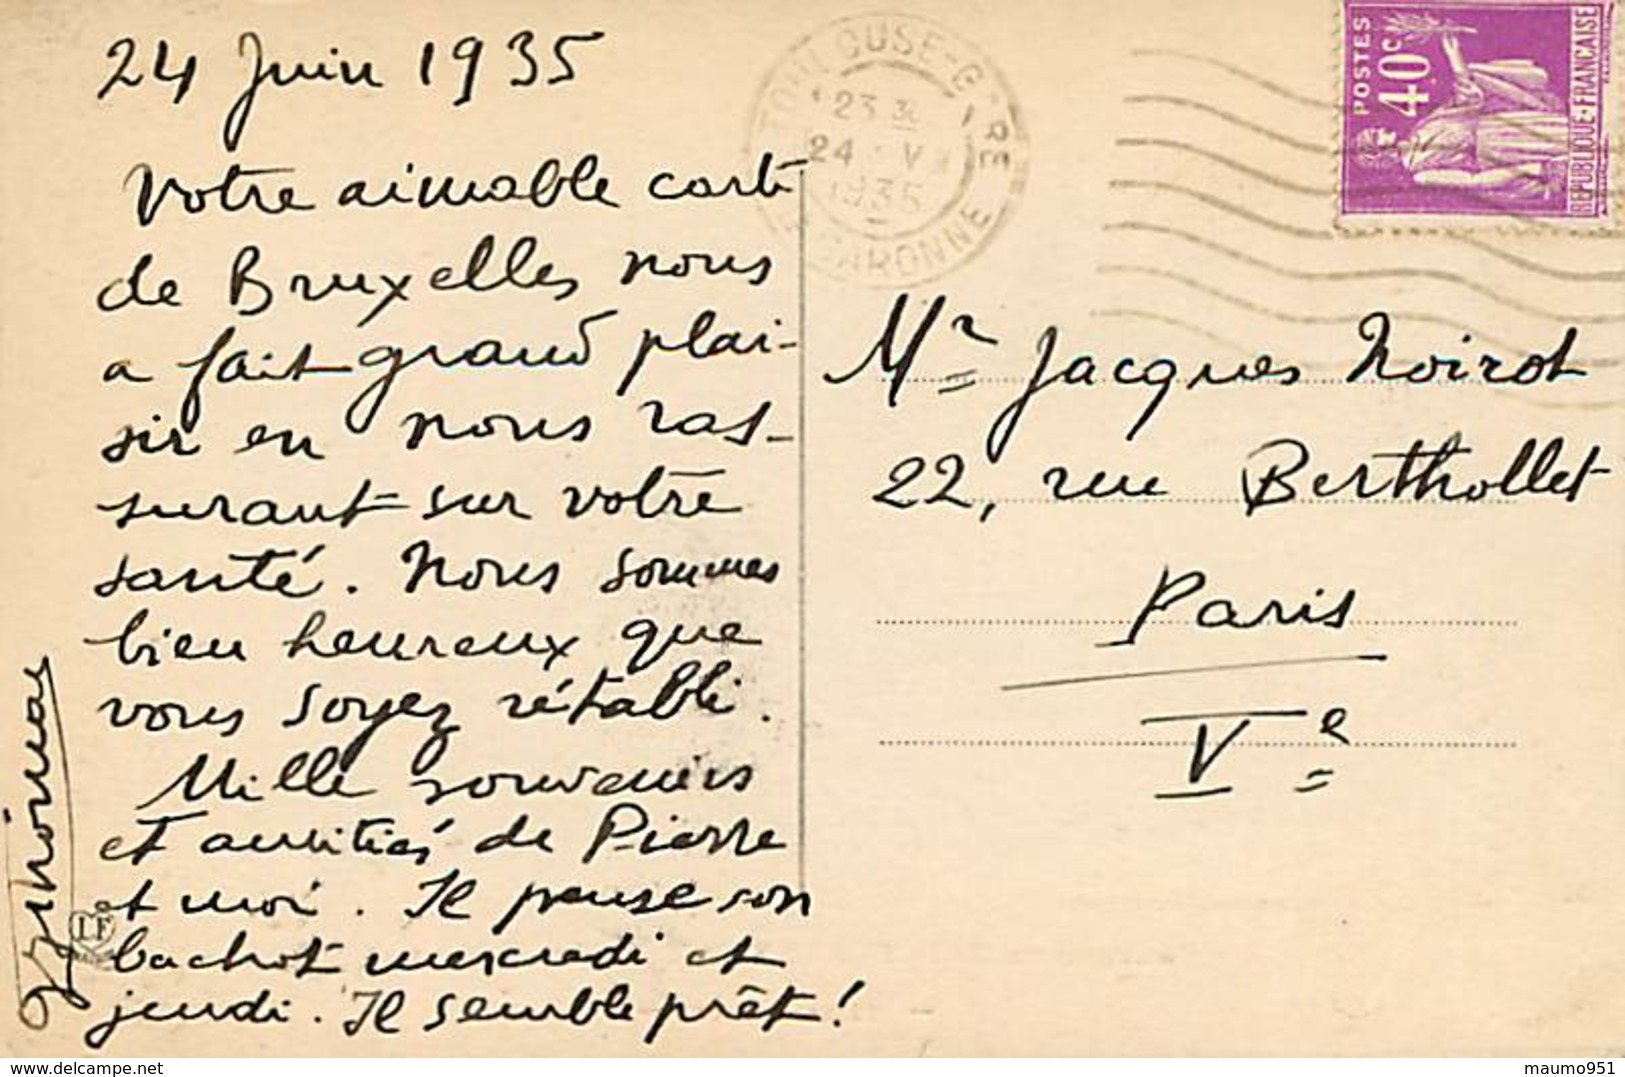 24 Juin 1935
Votre aimable carte
de Bruxelles nous
a fait grand plai-
sir en nous ras-
surant sur votre
santé. Nous sommes
bien heureux que
vous soyez rétabli.
Mille souvenirs
et amitiés de Pierre
et moi. Il pense son
bachot mercredi et
jeudi. Il semble prêt!
LF
TOULOUSE-G-RE
23 30
24 - VI
1935
GARONNE
POSTES
40c
REPUBLIQUE-FRANÇAISE
Mr Jacques Noirot
22, rue Berthollet
Paris
Ve
delcampe.net
maumo951